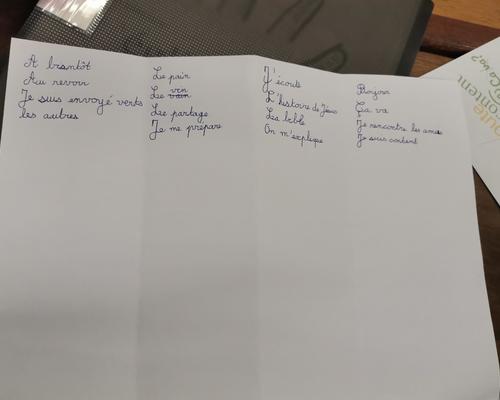 A brantôt
Au revoir
Je suis envoyé vents
les autres
Le pain
Le vin vain
Le partage
Je me prépare
J'écoute
L'histoire de Jésus
Les bible
On m'explique
Bonjour
Ça va
Je rencontre les amis
Je suis content
content